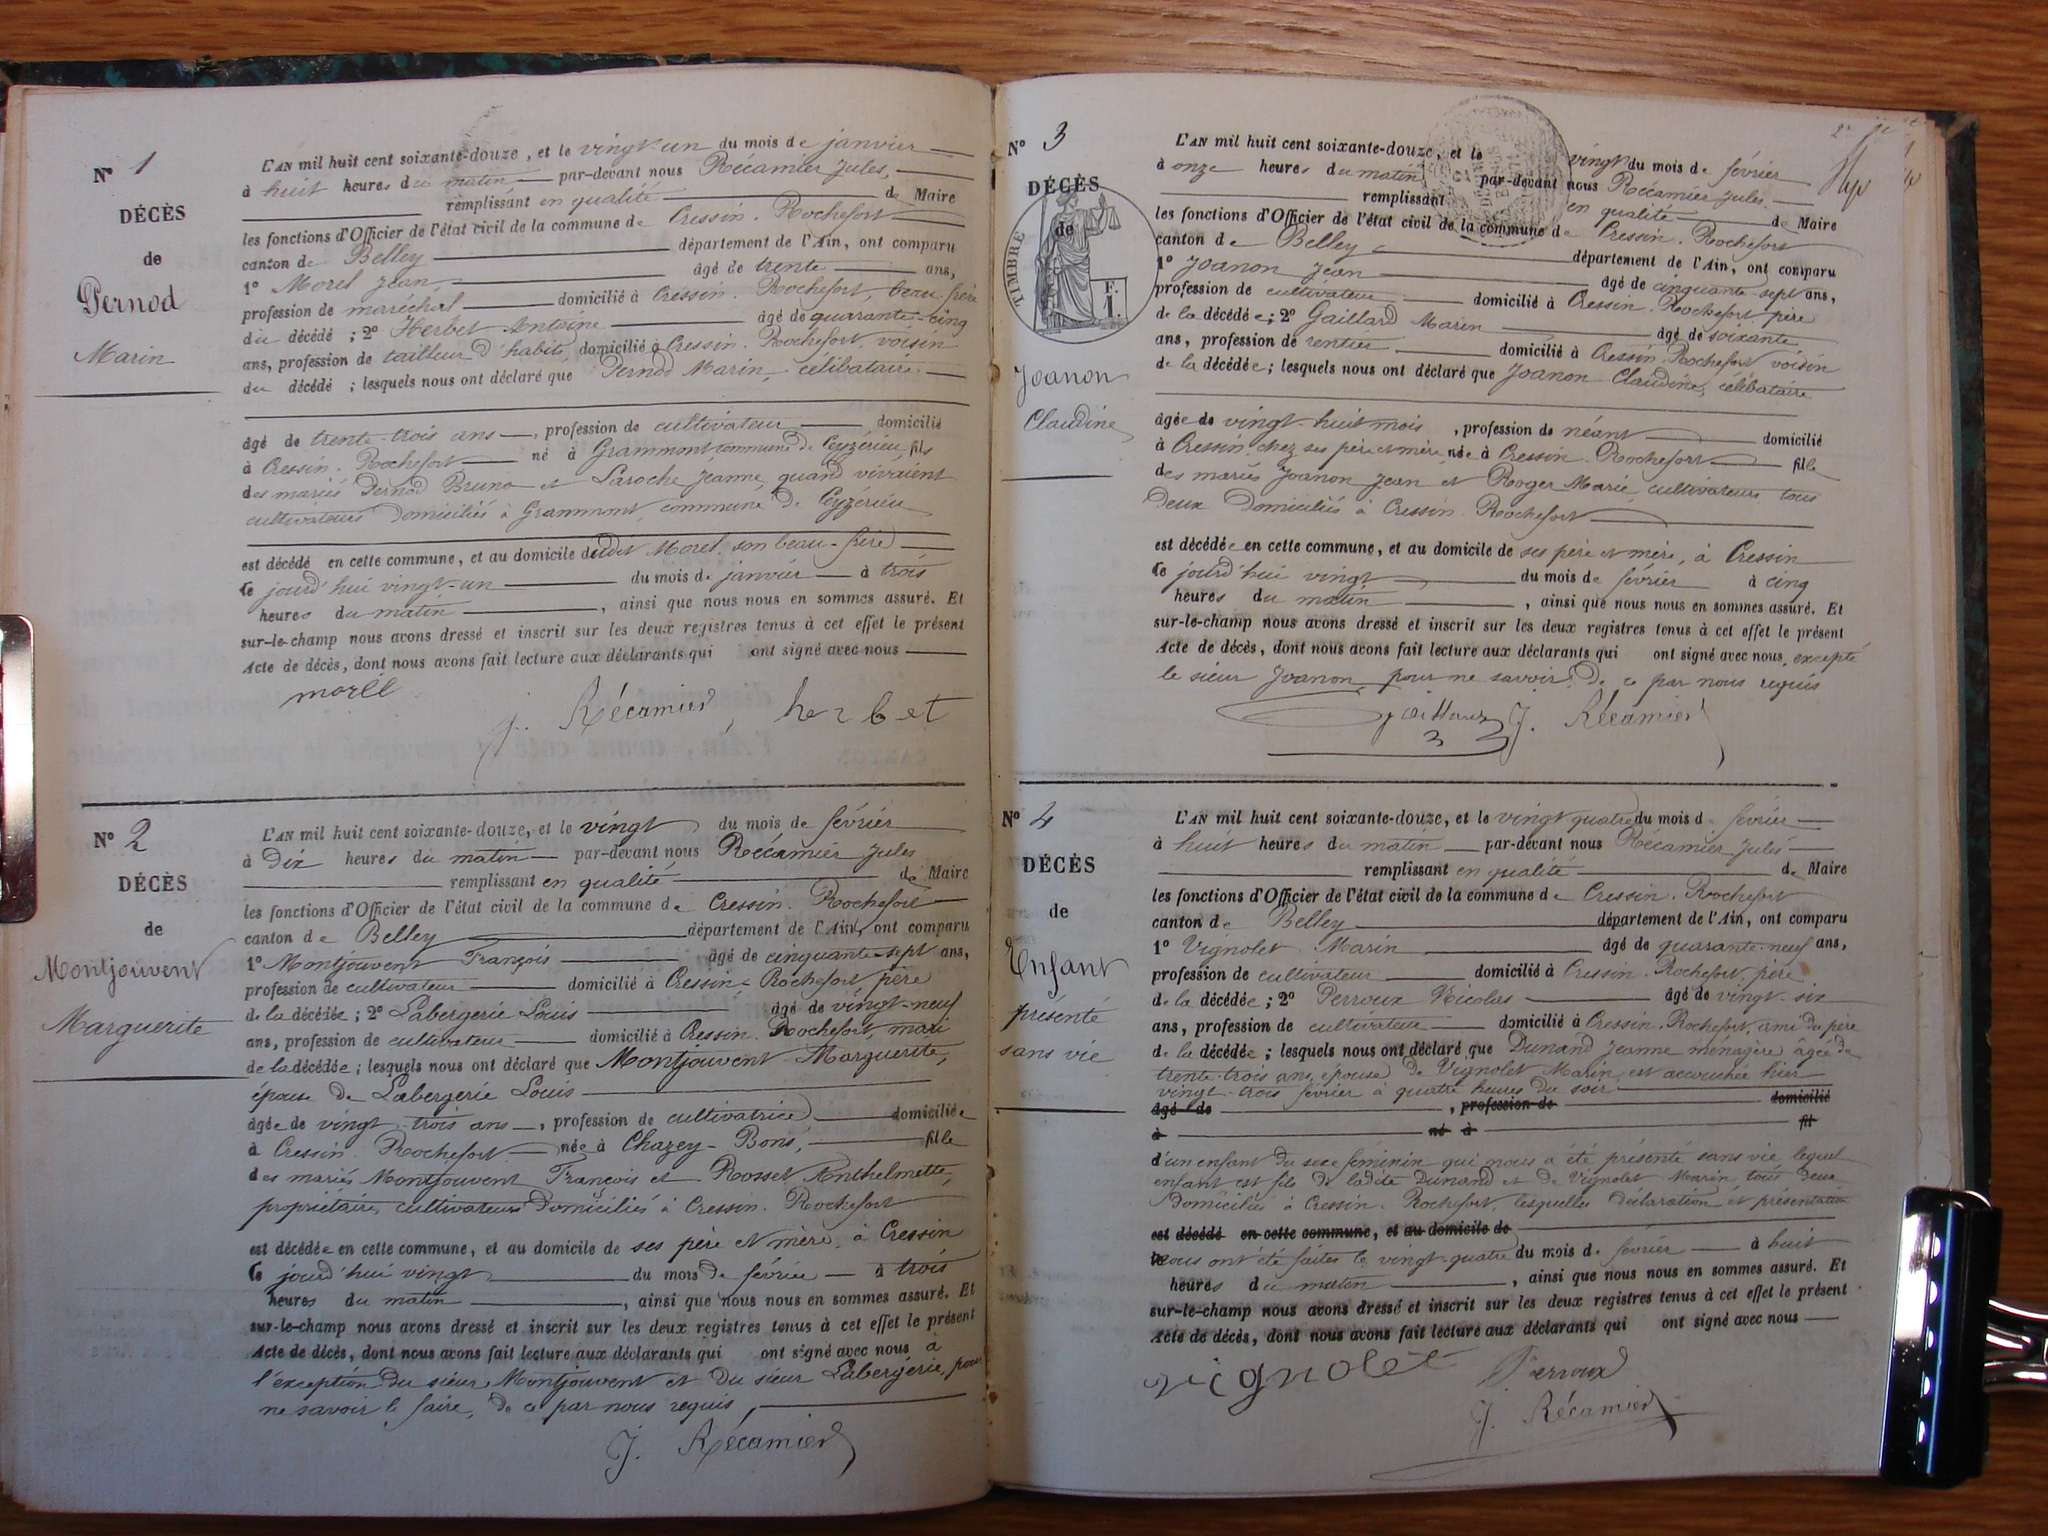 N° 1
DÉCÈS
de
Pernod
Marin
L'AN mil huit cent soixante-douze, et le vingt un du mois de janvier
à huit heures du matin par-devant nous Récamier Jules,
remplissant en qualité de Maire
les fonctions d'Officier de l'état civil de la commune de Cressin-Rochefort
canton de Belley département de l'Ain, ont comparu
1° Morel Jean, âgé de trente ans,
profession de maréchal domicilié à Cressin-Rochefort, beau-frère
du décédé ; 2° Herbet Antoine âgé de quarante-cinq
ans, profession de tailleur d'habits, domicilié à Cressin-Rochefort, voisin
du décédé ; lesquels nous ont déclaré que Pernod Marin, célibataire
âgé de trente-trois ans, profession de cultivateur domicilié
à Cressin-Rochefort né à Grammont commune de Ceyzérieu, fils
des mariés Pernod Bruno et Laroche Jeanne, quand vivaient
cultivateurs domiciliés à Grammont, commune de Ceyzérieu
est décédé en cette commune, et au domicile dudit Morel, son beau-frère
le jourd'hui vingt-un du mois de janvier à trois
heures du matin, ainsi que nous nous en sommes assuré. Et
sur-le-champ nous avons dressé et inscrit sur les deux registres tenus à cet effet le présent
Acte de décès, dont nous avons fait lecture aux déclarants qui ont signé avec nous
morel J. Récamier, herbet
N° 2
DÉCÈS
de
Montjouvent
Marguerite
L'AN mil huit cent soixante-douze, et le vingt du mois de février
à Dix heures du matin par-devant nous Récamier Jules
remplissant en qualité de Maire
les fonctions d'Officier de l'état civil de la commune de Cressin-Rochefort
canton de Belley département de l'Ain, ont comparu
1° Montjouvent François âgé de cinquante-sept ans,
profession de cultivateur domicilié à Cressin-Rochefort, père
de la décédée ; 2° Labergerie Louis âgé de vingt-neuf
ans, profession de cultivateur domicilié à Cressin-Rochefort, mari
de la décédée ; lesquels nous ont déclaré que Montjouvent Marguerite,
épouse de Labergerie Louis
âgée de vingt-trois ans, profession de cultivatrice domiciliée
à Cressin-Rochefort née à Chazey-Bons, fille
des mariés Montjouvent François et Rosset Anthelmette,
propriétaires cultivateurs domiciliés à Cressin-Rochefort
est décédée en cette commune, et au domicile de ses père et mère, à Cressin
le jourd'hui vingt du mois de février à trois
heures du matin, ainsi que nous nous en sommes assuré. Et
sur-le-champ nous avons dressé et inscrit sur les deux registres tenus à cet effet le présent
Acte de décès, dont nous avons fait lecture aux déclarants qui ont signé avec nous à
l'exception du sieur Montjouvent et du sieur Labergerie, pour
ne savoir le faire, de ce par nous requis,
J. Récamier
N° 3
DÉCÈS
de
TIMBRE
F.
1.
Joanon
Claudine
L'AN mil huit cent soixante-douze, et le vingt du mois de février
à onze heures du matin par-devant nous Récamier Jules.
remplissant en qualité de Maire
les fonctions d'Officier de l'état civil de la commune de Cressin-Rochefort
canton de Belley département de l'Ain, ont comparu
1° Joanon Jean âgé de cinquante-sept ans,
profession de cultivateur domicilié à Cressin-Rochefort père
de la décédée ; 2° Gaillard Marin âgé de soixante
ans, profession de rentier domicilié à Cressin-Rochefort voisin
de la décédée ; lesquels nous ont déclaré que Joanon Claudine, célibataire
âgée de vingt-huit mois, profession de néant domicilié
à Cressin chez ses père et mère née à Cressin-Rochefort fille
des mariés Joanon Jean et Roger Marie, cultivateurs tous
deux domiciliés à Cressin-Rochefort
est décédée en cette commune, et au domicile de ses père et mère, à Cressin
le jourd'hui vingt du mois de février à cinq
heures du matin, ainsi que nous nous en sommes assuré. Et
sur-le-champ nous avons dressé et inscrit sur les deux registres tenus à cet effet le présent
Acte de décès, dont nous avons fait lecture aux déclarants qui ont signé avec nous, excepté
le sieur Joanon pour ne savoir, de ce par nous requis
Gaillard J. Récamier
N° 4
DÉCÈS
de
Enfant
présenté
sans vie
L'AN mil huit cent soixante-douze, et le vingt quatre du mois de février
à huit heures du matin par-devant nous Récamier Jules
remplissant en qualité de Maire
les fonctions d'Officier de l'état civil de la commune de Cressin-Rochefort
canton de Belley département de l'Ain, ont comparu
1° Vignolet Marin âgé de quarante-neuf ans,
profession de cultivateur domicilié à Cressin-Rochefort, père
de la décédée ; 2° Perroux Nicolas âgé de vingt-six
ans, profession de cultivateur domicilié à Cressin-Rochefort, ami du père
de la décédée ; lesquels nous ont déclaré que Dunand Jeanne ménagère âgée de
trente-trois ans, épouse de Vignolet Marin, est accouchée hier
vingt-trois février à quatre heures du soir
âgé de, profession de domicilié
à né à fil
d'un enfant du sexe féminin qui nous a été présenté sans vie lequel
enfant est fils de ladite Dunand et de Vignolet Marin, tous deux
domiciliés à Cressin-Rochefort, lesquelles déclaration et présentation
est décédé en cette commune, et au domicile de
nous ont été faites le vingt-quatre du mois de février à huit
heures du matin, ainsi que nous nous en sommes assuré. Et
sur-le-champ nous avons dressé et inscrit sur les deux registres tenus à cet effet le présent
Acte de décès, dont nous avons fait lecture aux déclarants qui ont signé avec nous
vignolet Perroux
J. Récamier